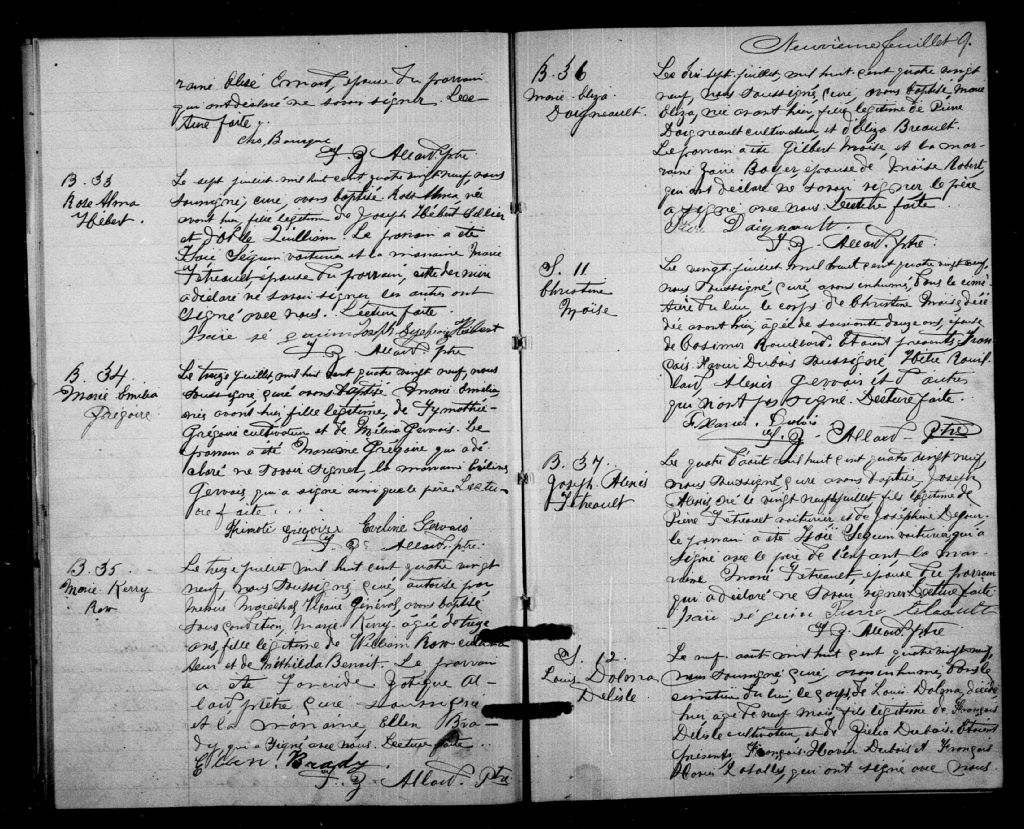 raine Elisé Ernost, épouse du parrain
qui ont déclaré ne savoir signer. Lec-
ture faite.
F. Z. Allard. ptre
B. 33
Rose Alma
Hébert.
Le sept juillet mil huit cent quatre vingt neuf, nous
soussigné, curé, avons baptisé Rose Alma née
avant hier, fille légitime de Joseph Hébert Sellier
et d'Odile Quilliam. Le parrain a été
Isaïe Séguin voiturier et la marraine Marie
Tétreault, épouse du parrain, cette dernière
a déclaré ne savoir signer les autres ont
signé avec nous. Lecture faite.
Isaïe sé guin Joseph Hébert
F. Z. Allard ptre
B. 34
Marie Emilia
Grégoire
Le treize juillet mil huit cent quatre vingt neuf, nous
soussigné curé avons baptisé Marie Emilia,
née avant hier fille légitime, de Tymothée
Grégoire cultivateur et de Mélina Gervais. Le
parrain a été Grégoire qui a dé-
claré ne savoir signer, la marraine
Gervais, qui a signé ainsi que le père. Lectu-
re faite....
Thimoté gregoire Eveline Gervais
F. Z. Allard. ptre.
B. 35
Marie Kerry
Row
Le treize juillet mil huit cent quatre vingt
neuf, nous soussigné, curé, autorisé par
Maréchal Vicaire Général, avons baptisé
sous condition, Marie Kerry, agée de treize
ans, fille légitime de William Row cultiva
teur et de Mathilda Benoit. Le parrain
a été Al-
lard prêtre curé soussigné
et la marraine Ellen Bra-
dy, qui a signé avec nous. Lecture faite..
Ellen Brady.
F. Z. Allard. Ptre
Neuvième feuillet 9.
B. 36
Marie Eliza
Daigneault.
Le dix sept juillet, mil huit cent quatre vingt
neuf, nous soussigné, curé, avons baptisé Marie
Eliza, née avant hier, fille légitime de Pierre
Daigneault cultivateur et d'Eliza Breault.
Le parrain a été Gilbert Moïse et la mar-
raine Boyer épouse de Moïse Robert
qui ont déclaré ne savoir signer le père
a signé avec nous. Lecture faite.
Daignault.
F. Z. Allard. ptre.
S. 11
Christine
Moïse
Le vingt juillet mil huit cent quatre vingt neuf,
nous soussigné curé avons inhumé, dans le cime-
tière du lieu le corps de Christine Moïse, décé
dée avant hier, agée de soixante douze ans, épouse
de Casimir Rouillard. Etaient présents Fran-
çois Xavier Dubois soussigné, Rouil-
lard Alexis Gervais et d'autres
qui n'ont pas signé. Lecture faite.
Dubois
F. Z. Allard. Ptre
B. 37.
Joseph Alexis
Tétreault
Le quatre d'août mil huit cent quatre vingt neuf,
nous soussigné curé avons baptisé, Joseph
Alexis, né le vingt neuf juillet fils légitime de
Pierre Tétreault voiturier et de Joséphine
le parrain a été Isaïe Séguin voiturier, qui a
signé avec le père de l'enfant la mar-
raine Marie Tétreault, épouse du parrain
qui a déclaré ne savoir signer Lecture faite.
Isaïe sé guin Pierre
F. Z. Allard. ptre
S. 12.
Louis Dolma
Delisle
Le neuf août mil huit cent quatre vingt neuf,
nous soussigné curé, avons inhumé, dans le
cimetière du lieu le corps, de Louis Dolma, décédé
hier agé de neuf mois, fils légitime de François
Delisle cultivateur, et de Délia Dubois. Etaient
présents François-Xavier Dubois et François
Xavier Lasalle, qui ont signé avec nous.